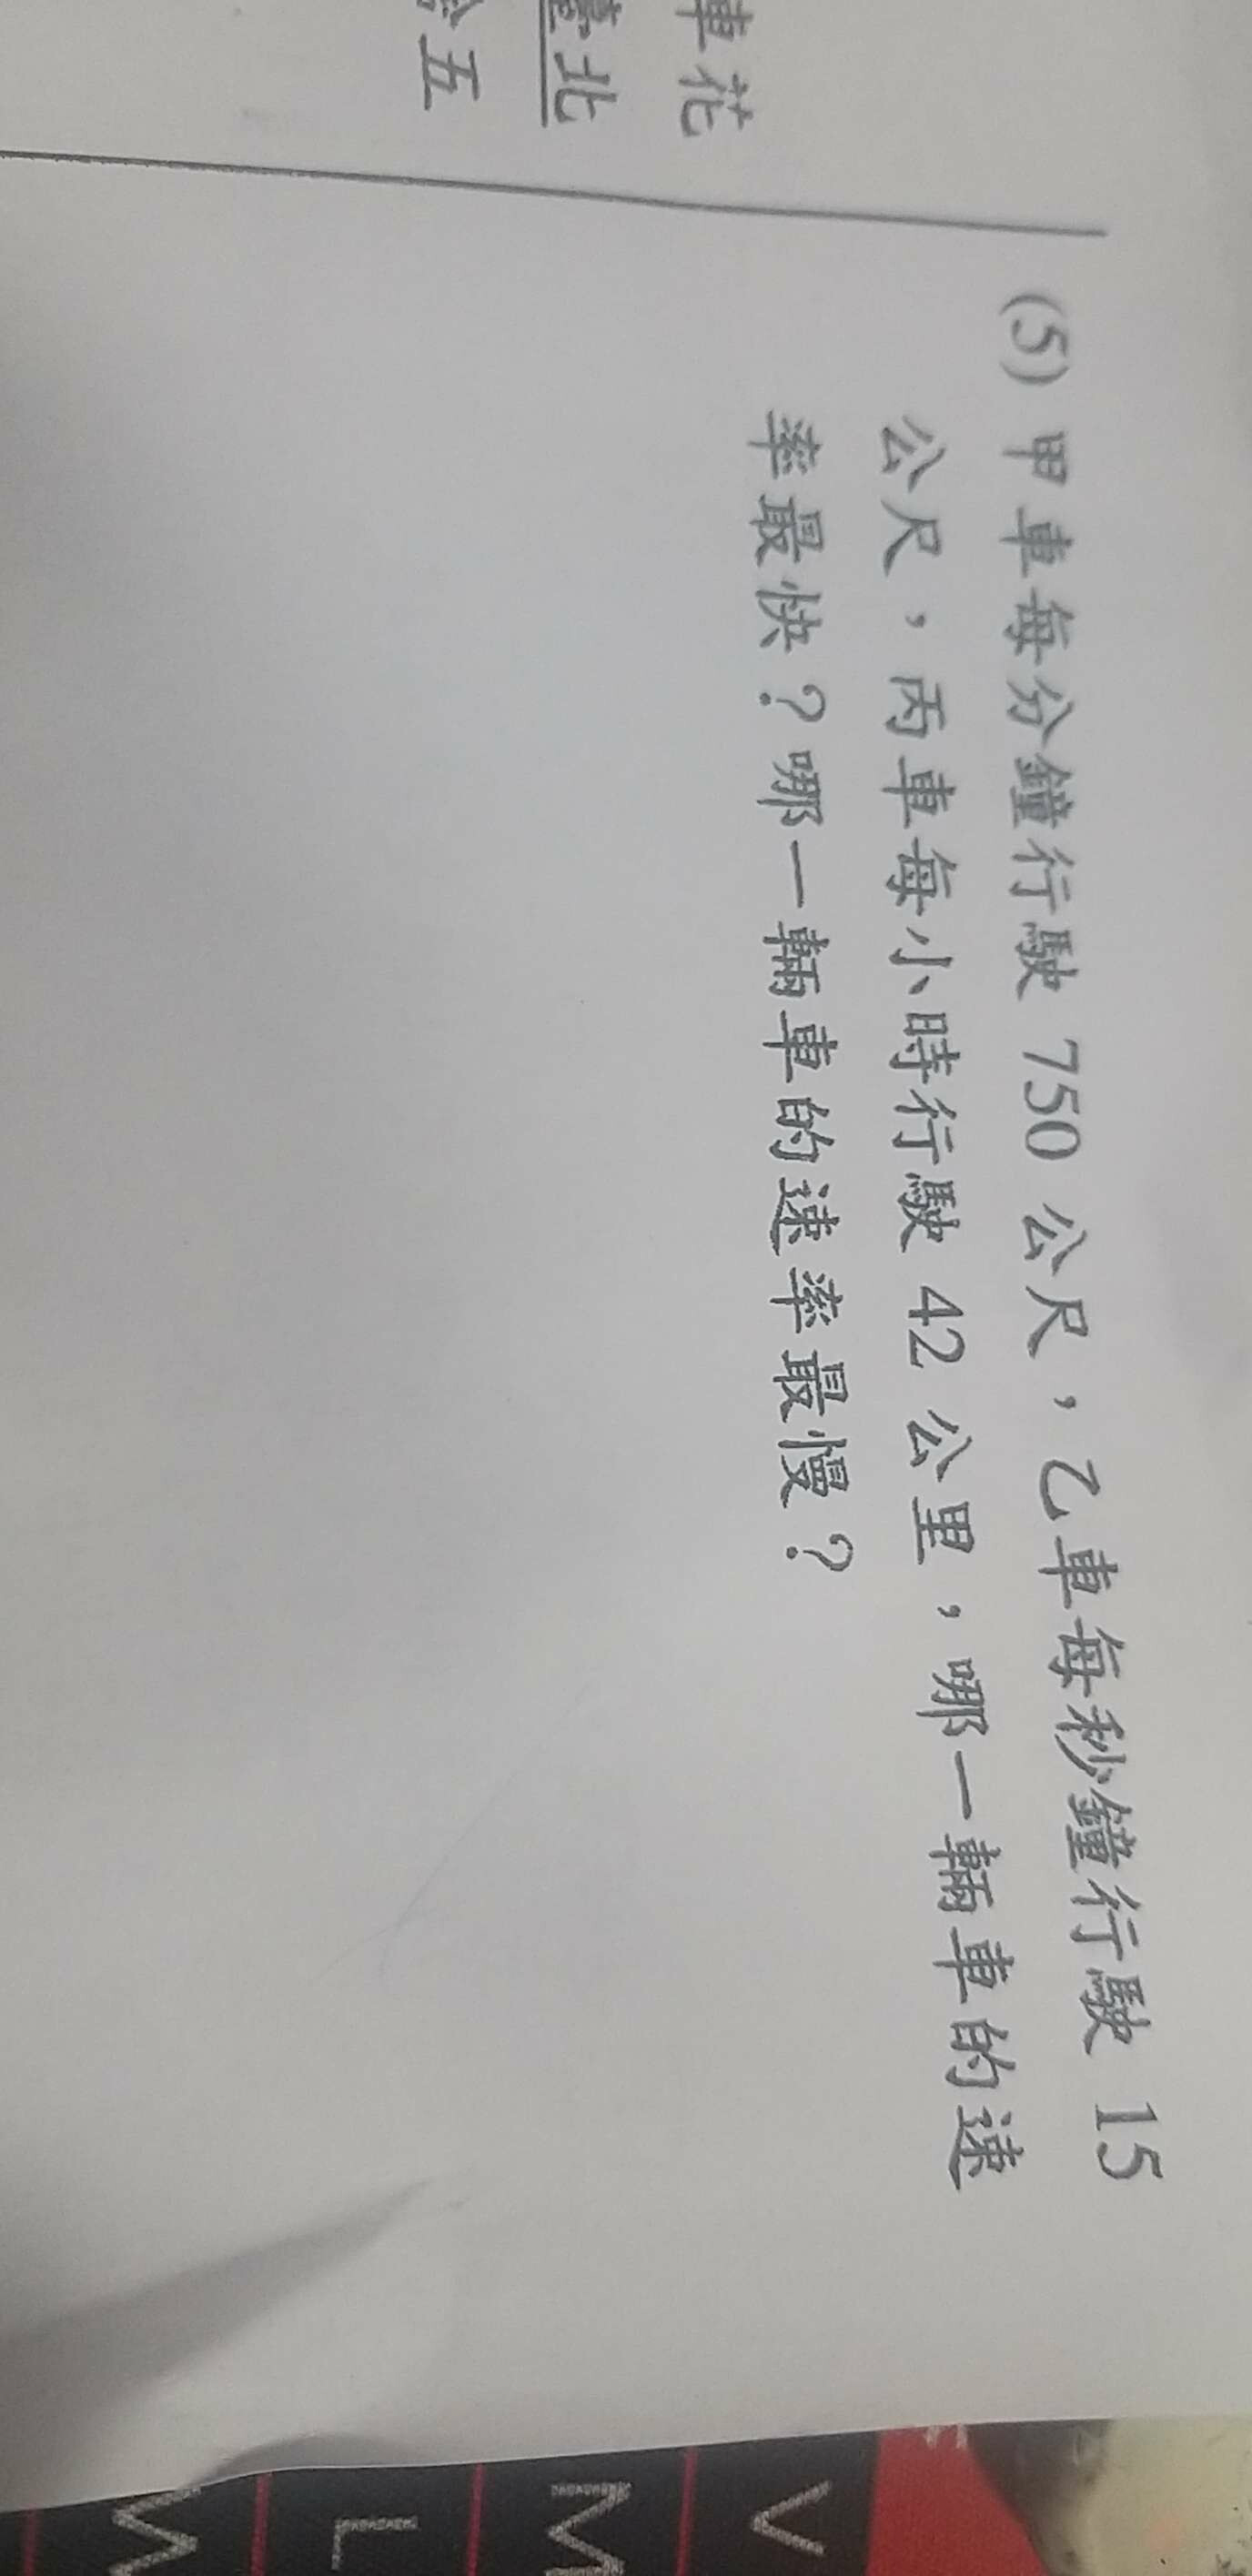 (5) 甲車每分鐘行駛 750 公尺，乙車每秒鐘行駛 15
公尺，丙車每小時行駛 42 公里，哪一輛車的速
率最快？哪一輛車的速率最慢？
車花
臺北
五
V
M
L